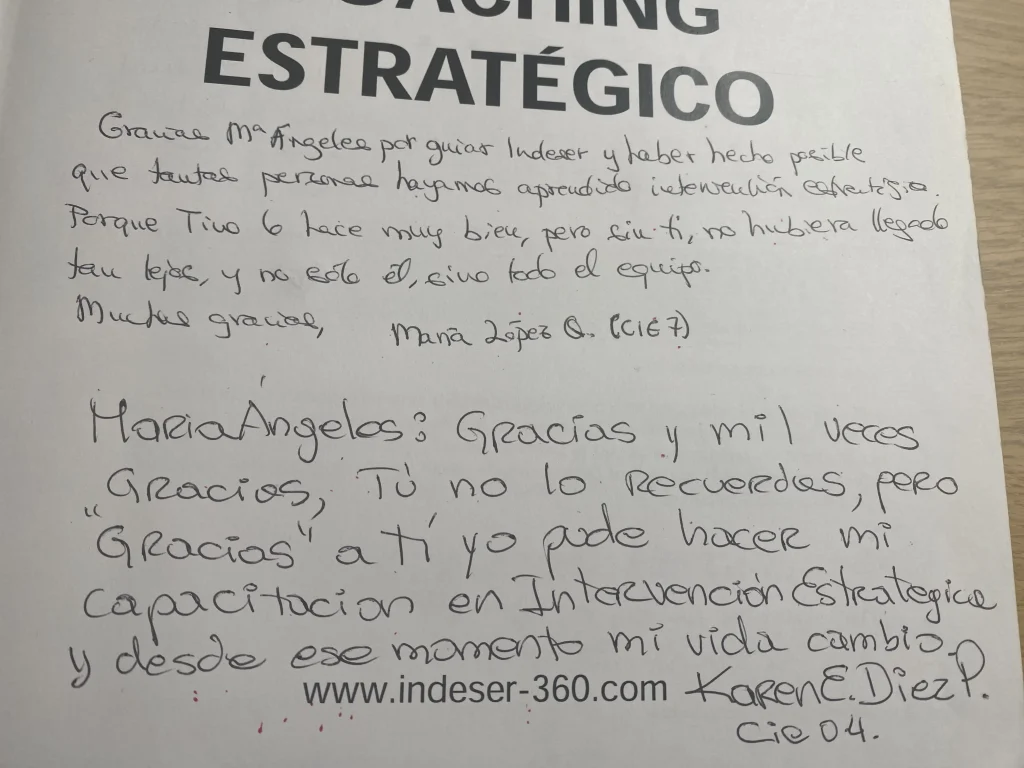 COACHING
ESTRATÉGICO
Gracias Mª Ángeles por guiar Indeser y haber hecho posible
que tantas personas hayamos aprendido intervención estratégica.
Porque Tino lo hace muy bien, pero sin ti, no hubiera llegado
tan lejos, y no sólo él, sino todo el equipo.
Muchas gracias, María López Q. (CIE7)
Maria Ángeles: Gracias y mil veces
Gracias, Tú no lo Recuerdas, pero
"Gracias" a tí yo pude hacer mi
capacitacion en Intervención Estrategica
y desde ese momento mi vida cambio.
www.indeser-360.com Karen E. Diez P.
Cie 04.